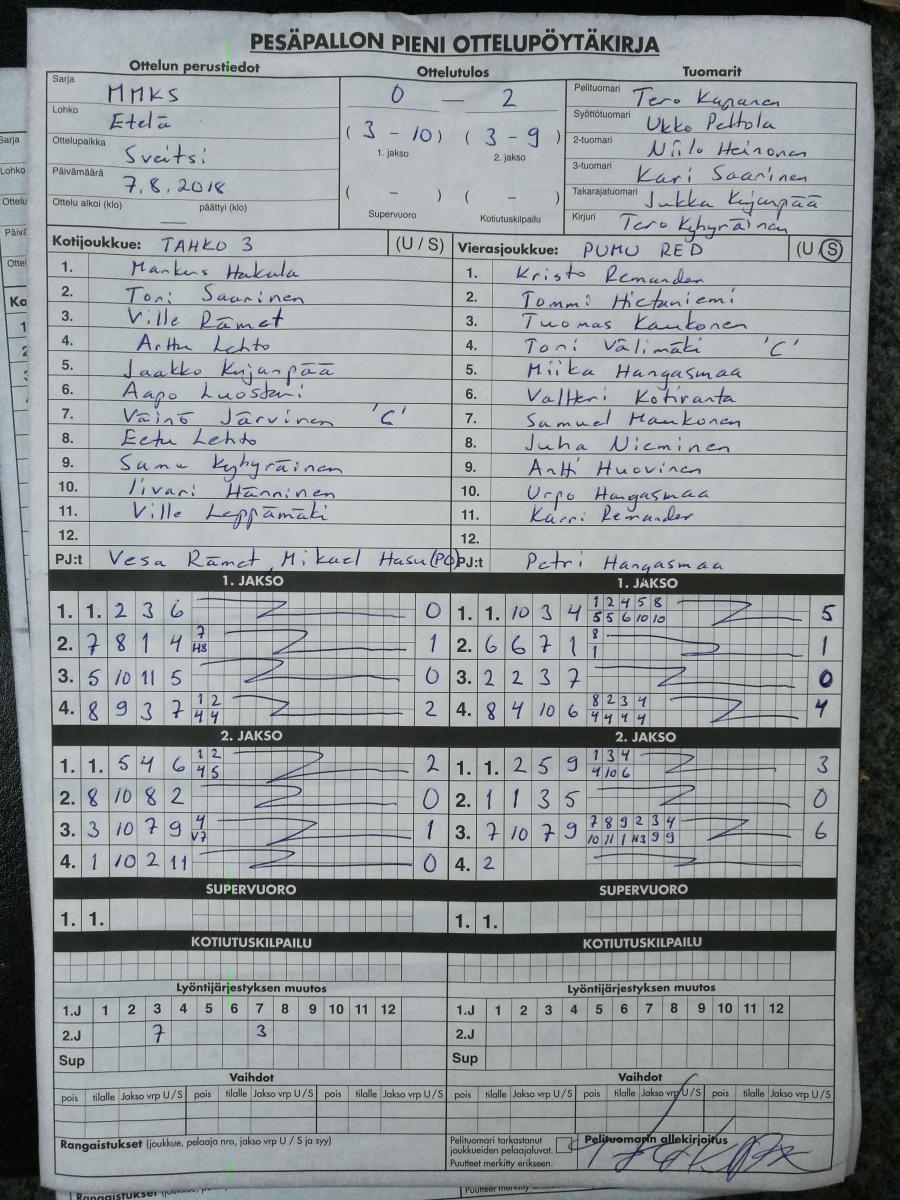 PESÄPALLON PIENI OTTELUPÖYTÄKIRJA
Ottelun perustiedot
Sarja MMKS
Lohko Etelä
Ottelupaikka Sveitsi
Päivämäärä 7.8.2018
Ottelu alkoi (klo) — päättyi (klo)
Ottelutulos
0 — 2
( 3 - 10 ) ( 3 - 9 )
1. jakso 2. jakso
( - ) ( - )
Supervuoro Kotiutuskilpailu
Tuomarit
Pelituomari Tero Kapanen
Syöttötuomari Ukko Peltola
2-tuomari Niilo Heinonen
3-tuomari Kari Saarinen
Takarajatuomari Jukka Kujanpää
Kirjuri Tero Kyhyräinen
Kotijoukkue: TAHKO 3 (U / S)
1. Markus Hakala
2. Toni Saarinen
3. Ville Rämet
4. Arttu Lehto
5. Jaakko Kujanpää
6. Aapo Luostari
7. Väinö Järvinen 'C'
8. Eetu Lehto
9. Samu Kyhyräinen
10. Iivari Hänninen
11. Ville Leppämäki
12.
PJ:t Vesa Rämet, Mikael Hasu (PO)
Vierasjoukkue: PUMU RED (U / S)
1. Kristo Remander
2. Tommi Hietaniemi
3. Tuomas Kaukonen
4. Toni Välimäki 'C'
5. Miika Hangasmaa
6. Valtteri Kotiranta
7. Samuel Haukonen
8. Juha Nieminen
9. Antti Huovinen
10. Urpo Hangasmaa
11. Karri Remander
12.
PJ:t Petri Hangasmaa
1. JAKSO
1. 1. 2 3 6 0
2. 7 8 1 4 7 1
H8
3. 5 10 11 5 0
4. 8 9 3 7 1 2 2
4 4
2. JAKSO
1. 1. 5 4 6 1 2 2
4 5
2. 8 10 8 2 0
3. 3 10 7 9 4 1
V7
4. 1 10 2 11 0
SUPERVUORO
1. 1.
KOTIUTUSKILPAILU
1. JAKSO
1. 1. 10 3 4 1 2 4 5 8 5
5 5 6 10 10
2. 6 6 7 1 8 1
1
3. 2 2 3 7 0
4. 8 4 10 6 8 2 3 4 4
4 4 4 4
2. JAKSO
1. 1. 2 5 9 1 3 4 3
4 10 6
2. 1 1 3 5 0
3. 7 10 7 9 7 8 9 2 3 4 6
10 11 1 H3 9 9
4. 2
SUPERVUORO
1. 1.
KOTIUTUSKILPAILU
Lyöntijärjestyksen muutos
1.J 1 2 3 4 5 6 7 8 9 10 11 12
2.J 7 3
Sup
Vaihdot
pois tilalle Jakso vrp U / S pois tilalle Jakso vrp U / S pois tilalle Jakso vrp U / S
Rangaistukset (joukkue, pelaaja nro, jakso vrp U / S ja syy)
Lyöntijärjestyksen muutos
1.J 1 2 3 4 5 6 7 8 9 10 11 12
2.J
Sup
Vaihdot
pois tilalle Jakso vrp U / S pois tilalle Jakso vrp U / S pois tilalle Jakso vrp U / S
Pelituomari tarkastanut
joukkueiden pelaajaluvat.
Puutteet merkitty erikseen.
Pelituomarin allekirjoitus